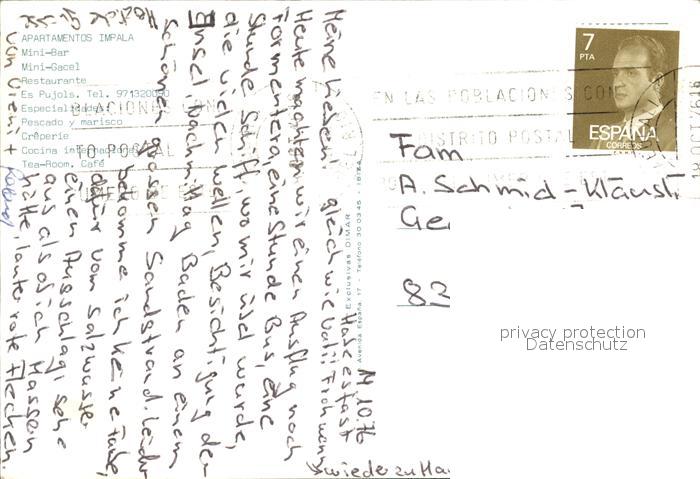 Meine Lieben! gleich wie Vati! Fich wenn
Heute machten wir einen Ausflug nach
Formentera, eine Stunde Bus, eine
Stunde Schiff, wo mir übel wurde,
die vielen Wellen, Besichtigung der
Insel, Nachmittag Baden an einem
schönen grossen Sandstrand. Leider
bekomme ich keine Farbe,
dafür vom Salzwasser
einen Ausschlag, sehe
aus als ob ich Massern
hätte, lauter rote Flecken.
Herzliche Grüsse
von Vreni +
Hase es fast
wieder zu Ha
14.10.76
APARTAMENTOS IMPALA
Mini-Bar
Mini-Gacel
Restaurante
Es Pujols. Tel. 971320080
Especialidades
Pescado y marisco
Crêperie
Cocina internacional
Tea-Room, Café
Exclusivas DIMAR
Avenida España, 17 - Teléfono 30 03 45
EN LAS POBLACIONES CON
DISTRITO POSTAL
7
PTA
ESPAÑA
CORREOS
Fam
A. Schmid-Kläusli
Ge
82
privacy protection
Datenschutz